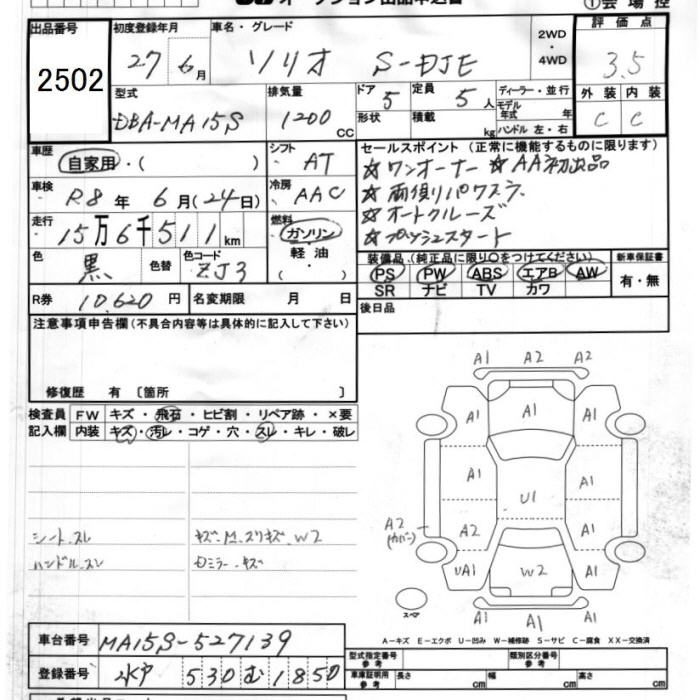 出品番号 2502
初度登録年月 27年 6月
車名・グレード ソリオ S-DJE
2WD・4WD
評価点 3.5
型式 DBA-MA15S
排気量 1200 CC
ドア 5
形状
定員 5人
積載 kg
ディーラー・並行
モデル年式 年
ハンドル 左・右
外装 C 内装 C
車歴 自家用・( )
シフト AT
車検 R8年 6月(24日)
冷房 AAC
走行 15万6千511km
燃料 ガソリン・軽油・( )
色 黒 色替 色コード ZJ3
R券 10,620円 名変期限 月 日
セールスポイント (正常に機能するものに限ります)
☆ワンオーナー ☆AA初出品
☆両側リパワスラ
☆オートクルーズ
☆プッシュスタート
装備品 (純正品に限り○をつけてください)
新車保証書
PS PW ABS エアB AW
有・無
SR ナビ TV カワ
後日品
注意事項申告欄 (不具合内容等は具体的に記入して下さい)
修復歴 有 〔箇所 〕
検査員記入欄
FW キズ・飛石・ヒビ割・リペア跡・×要
内装 キズ・汚レ・コゲ・穴・スレ・キレ・破レ
シートスレ
ハンドルスレ
キズ・M.スリキズ.W2
Dミラーキズ
A1 A2 A2
A1 A1 A1
A1 A1
U1
A2 (カバー) A2 A1
UA1 W2 A1
スペア
A1 A1 A1
A-キズ E-エクボ U-凹み W-補修跡 S-サビ C-腐食 XX-交換済
車台番号 MA15S-527139
型式指定番号 参考
類別区分番号 参考
登録番号 水戸 530 む 1850
車庫証明用 参考 長さ cm 幅 cm 高さ cm